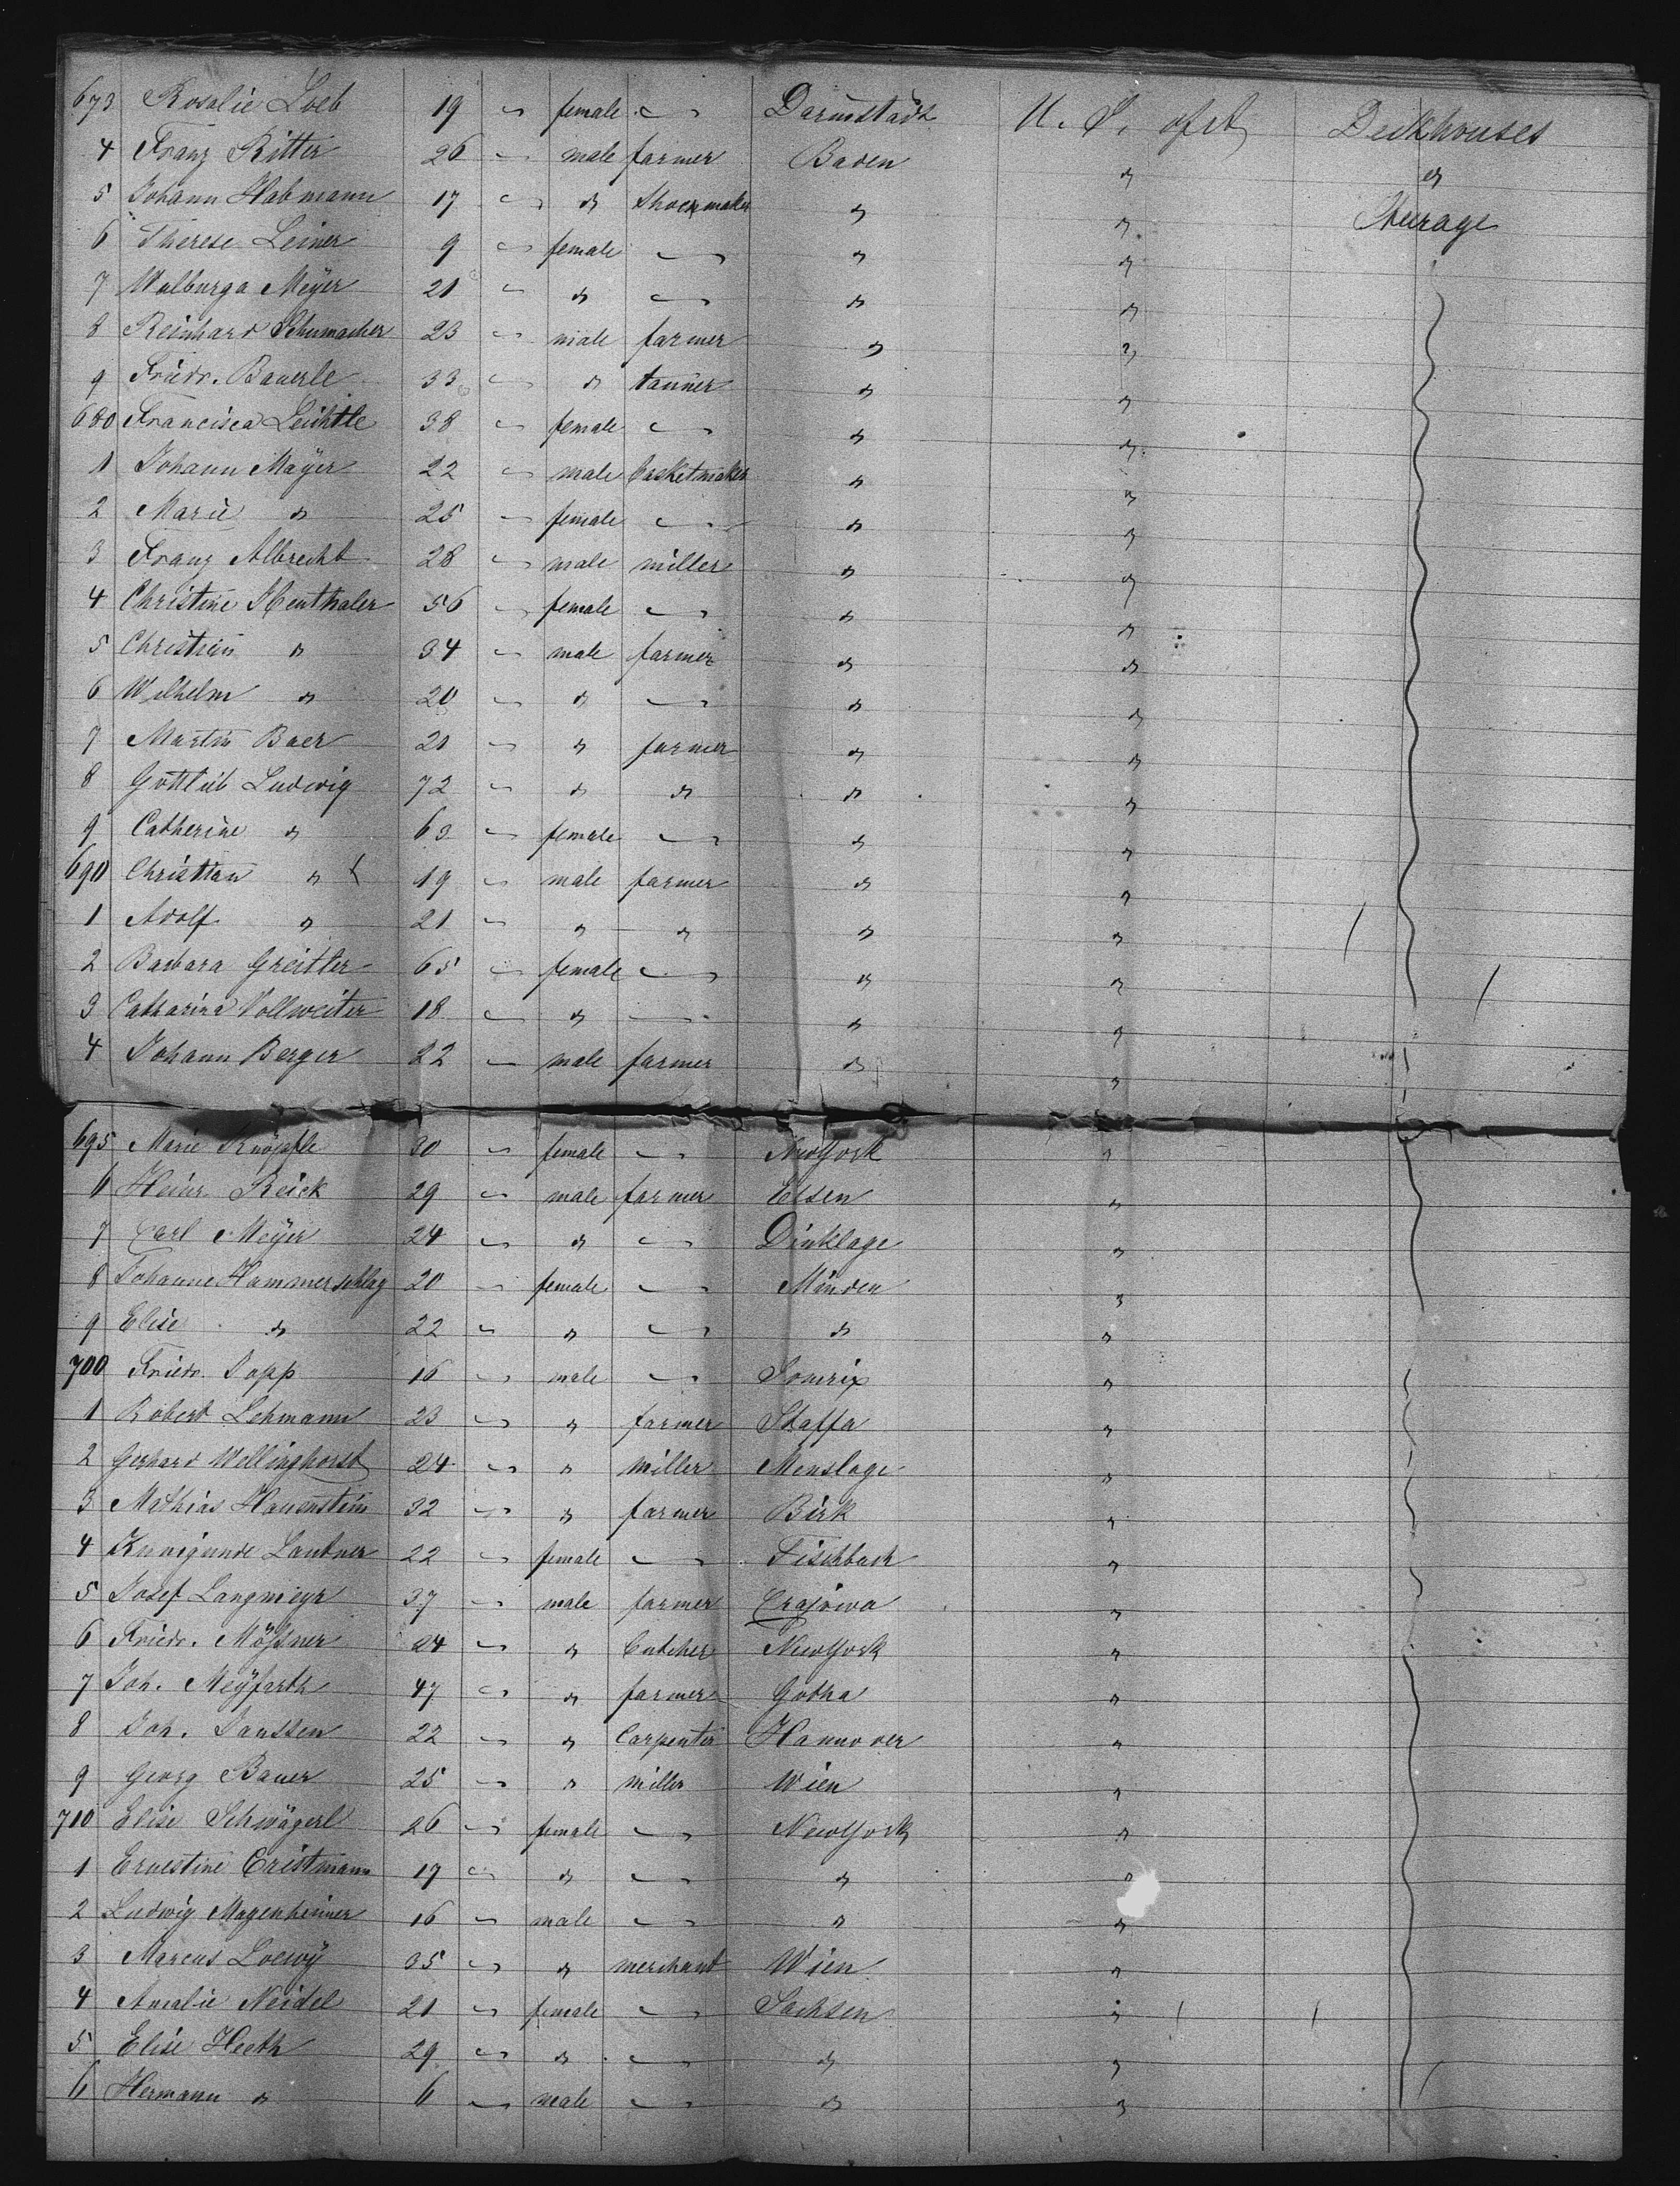 673 Rosalie Loeb 19 female Darmstadt U. S. of A Deckhouses
4 Franz Ritter 26 male farmer Baden " "
5 Johann Habmann 17 " Shoemaker " " Steerage
6 Therese Leiner 9 female " "
7 Walburga Meÿer 21 " " "
8 Reinhard Schumacher 23 male farmer " "
9 Friedr. Bauerle 33 " tanner " "
680 Francisca Leichtle 38 female " "
1 Johann Maÿer 22 male basketmaker " "
2 Marie " 25 female " "
3 Franz Albrecht 28 male miller " "
4 Christine Henthaler 56 female " "
5 Christian " 34 male farmer " "
6 Wilhelm " 20 " " "
7 Martin Baer 21 " farmer " "
8 Gottlieb Ludwig 72 " " " "
9 Catherine " 63 female " "
690 Christian " 19 male farmer " "
1 Adolf " 21 " " " "
2 Barbara Greitter 65 female " "
3 Catharina Vollweiter 18 " " "
4 Johann Berger 22 male farmer " "
695 Marie Knöpfle 30 female NewYork "
6 Heinr. Reick 29 male farmer Essen "
7 Carl Meÿer 24 " Dinklage "
8 Johanne Hammerschlag 20 female Minden "
9 Elise " 22 " " "
700 Friedr. Popp 16 male "
1 Robert Lehmann 23 " farmer Staffa "
2 Gerhard Wellinghorst 24 " miller Menslage "
3 Mathias Hauenstein 32 " farmer Birk "
4 Kunigunde Lautner 22 female Fischbach "
5 Josef Langmeyr 37 male farmer Crajowa "
6 Friedr. Mößner 24 " butcher NewYork "
7 Joh. Meÿfarth 47 " farmer Gotha "
8 Joh. Janssen 22 " Carpenter Hannover "
9 Georg Bauer 25 " miller Wien "
710 Elise Schwägerl 26 female NewYork "
1 Ernestine Cristmann 17 " " "
2 Ludwig Magenheimer 16 male " "
3 Marcus Loewÿ 35 " merchant Wien "
4 Amalie Neidel 21 female Sachsen "
5 Elise Heeth 29 " " "
6 Hermann " 6 male " "